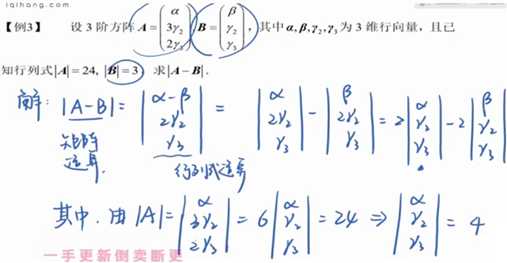 iqihang.com
【例3】 设 3 阶方阵 A = (α 3γ₂ 2γ₃), B = (β γ₂ γ₃), 其中 α, β, γ₂, γ₃ 为 3 维行向量，且已
知行列式|A| = 24, |B| = 3, 求|A − B|.
解: |A-B| = |α-β 2γ₂ γ₃| = |α 2γ₂ γ₃| - |β 2γ₂ γ₃| = 2|α γ₂ γ₃| - 2|β γ₂ γ₃|
矩阵运算. 行列式运算
其中. 由 |A| = |α 3γ₂ 2γ₃| = 6|α γ₂ γ₃| = 24 ⇒ |α γ₂ γ₃| = 4
一手更新倒卖断更